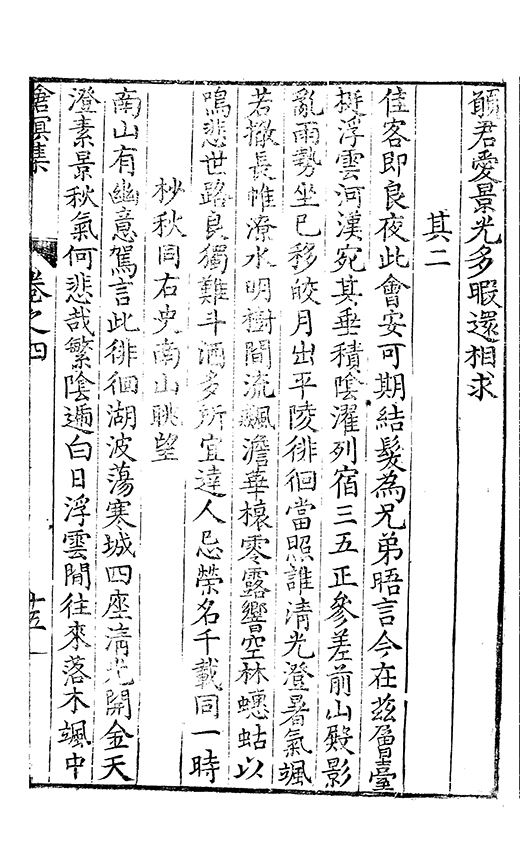 願君愛景光多暇還相求
其二
佳客即良夜此會安可期結髮為兄弟晤言今在茲層臺
挺浮雲河漢宛其垂積陰濯列宿三五正參差前山殿影
亂雨勢坐已移皎月出平陵徘徊當照誰清光澄暑氣颯
若撤長帷潦水明樹間流飄澹華榱零露響空林蟪蛄以
鳴悲世路良獨難斗酒多所宜達人忌榮名千載同一時
杪秋同右史南山眺望
南山有幽意駕言此徘徊湖波蕩寒城四座清光開金天
澄素景秋氣何悲哉繁陰遁白日浮雲間往來落木颯中
滄溟集
卷之四
十五